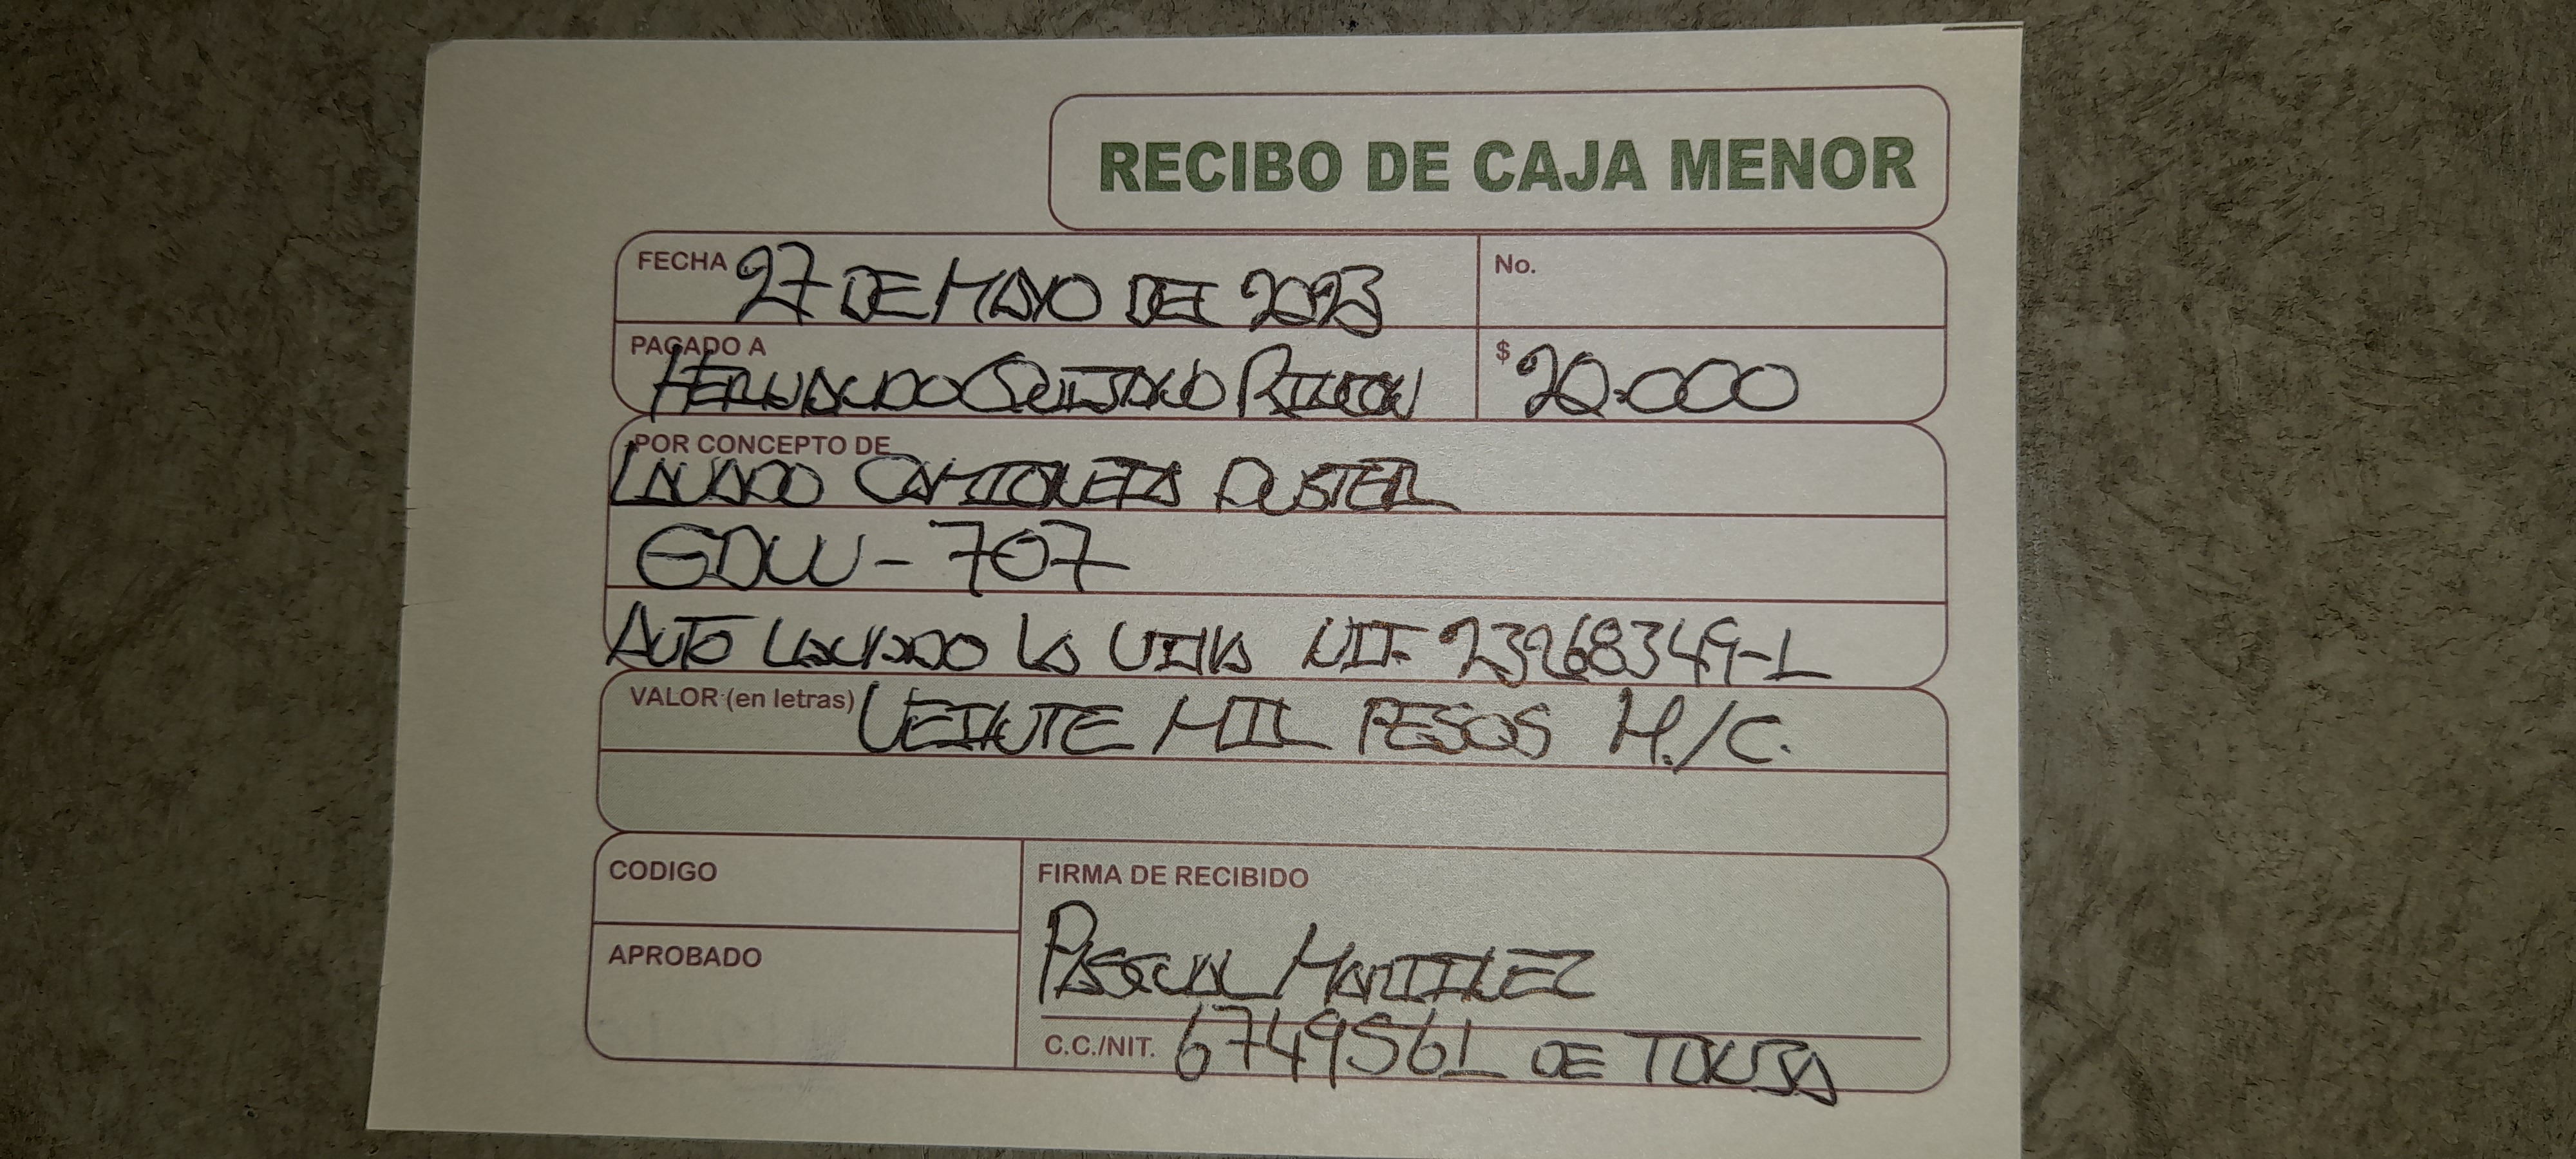 RECIBO DE CAJA MENOR
FECHA 27 DE MAYO DEL 2023
No.
PAGADO A
HERNANDO QUIJANO RINCON
$ 20.000
POR CONCEPTO DE
LAVADO CAMIONETA DUSTER
GDW - 707
AUTO LAVADO LA VIÑA NIT- 23268349-1
VALOR (en letras) VEINTE MIL PESOS M./C.
CODIGO
APROBADO
FIRMA DE RECIBIDO
PASCUAL MARTINEZ
C.C./NIT. 6749561 DE TUNJA